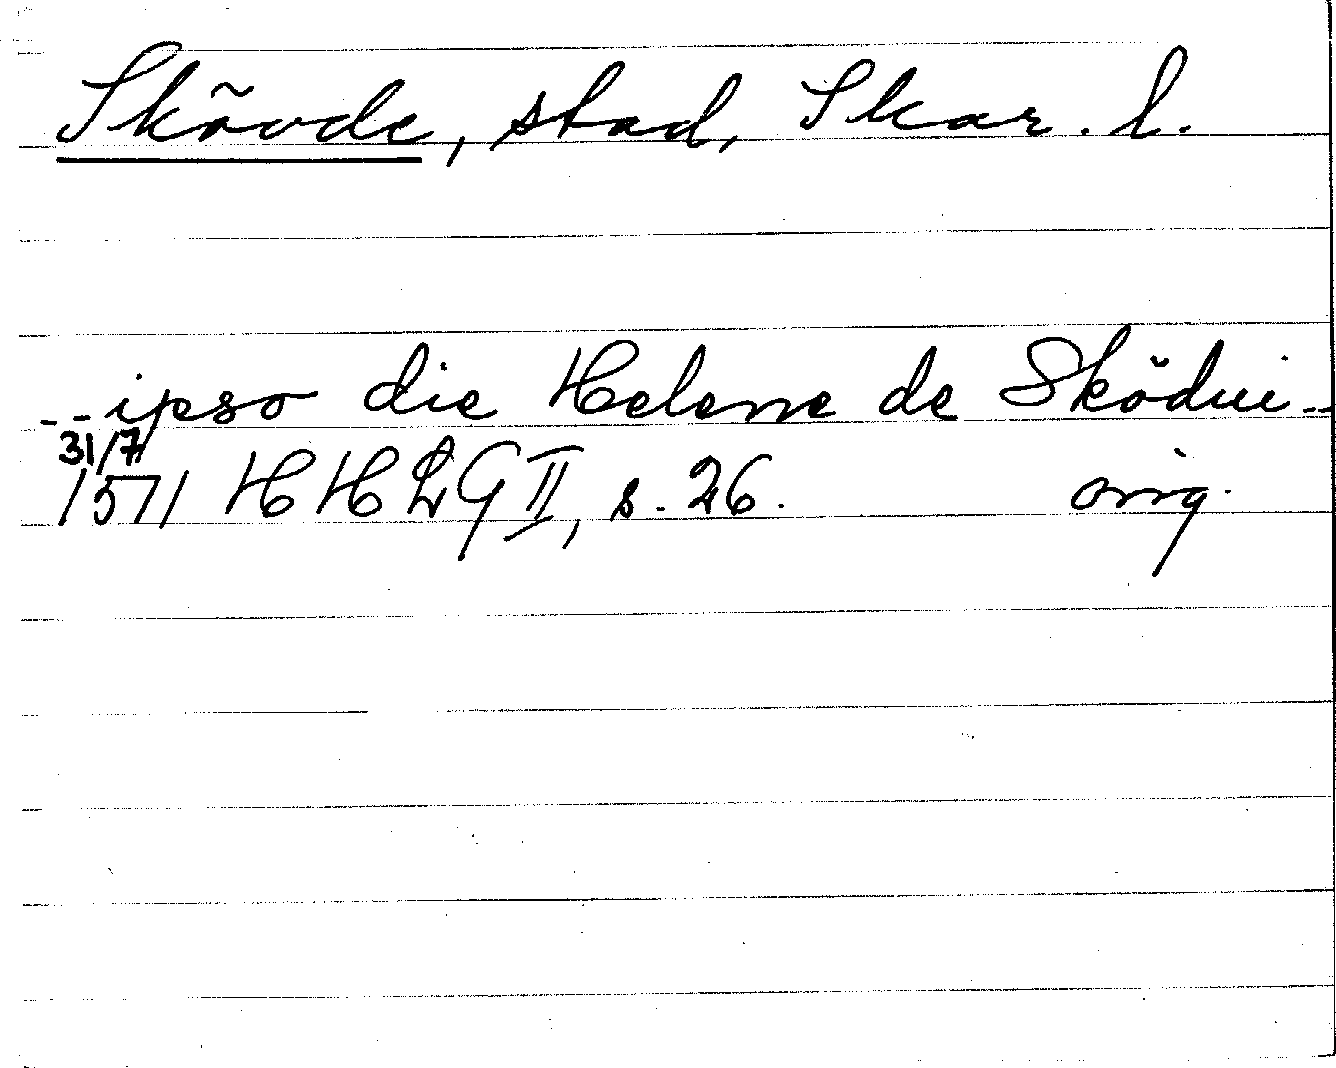 Skövde, stad, Skar. l.
- - ipso die Helene de Sködui - -
31/7
1571 HHLG II, s. 26. orig.